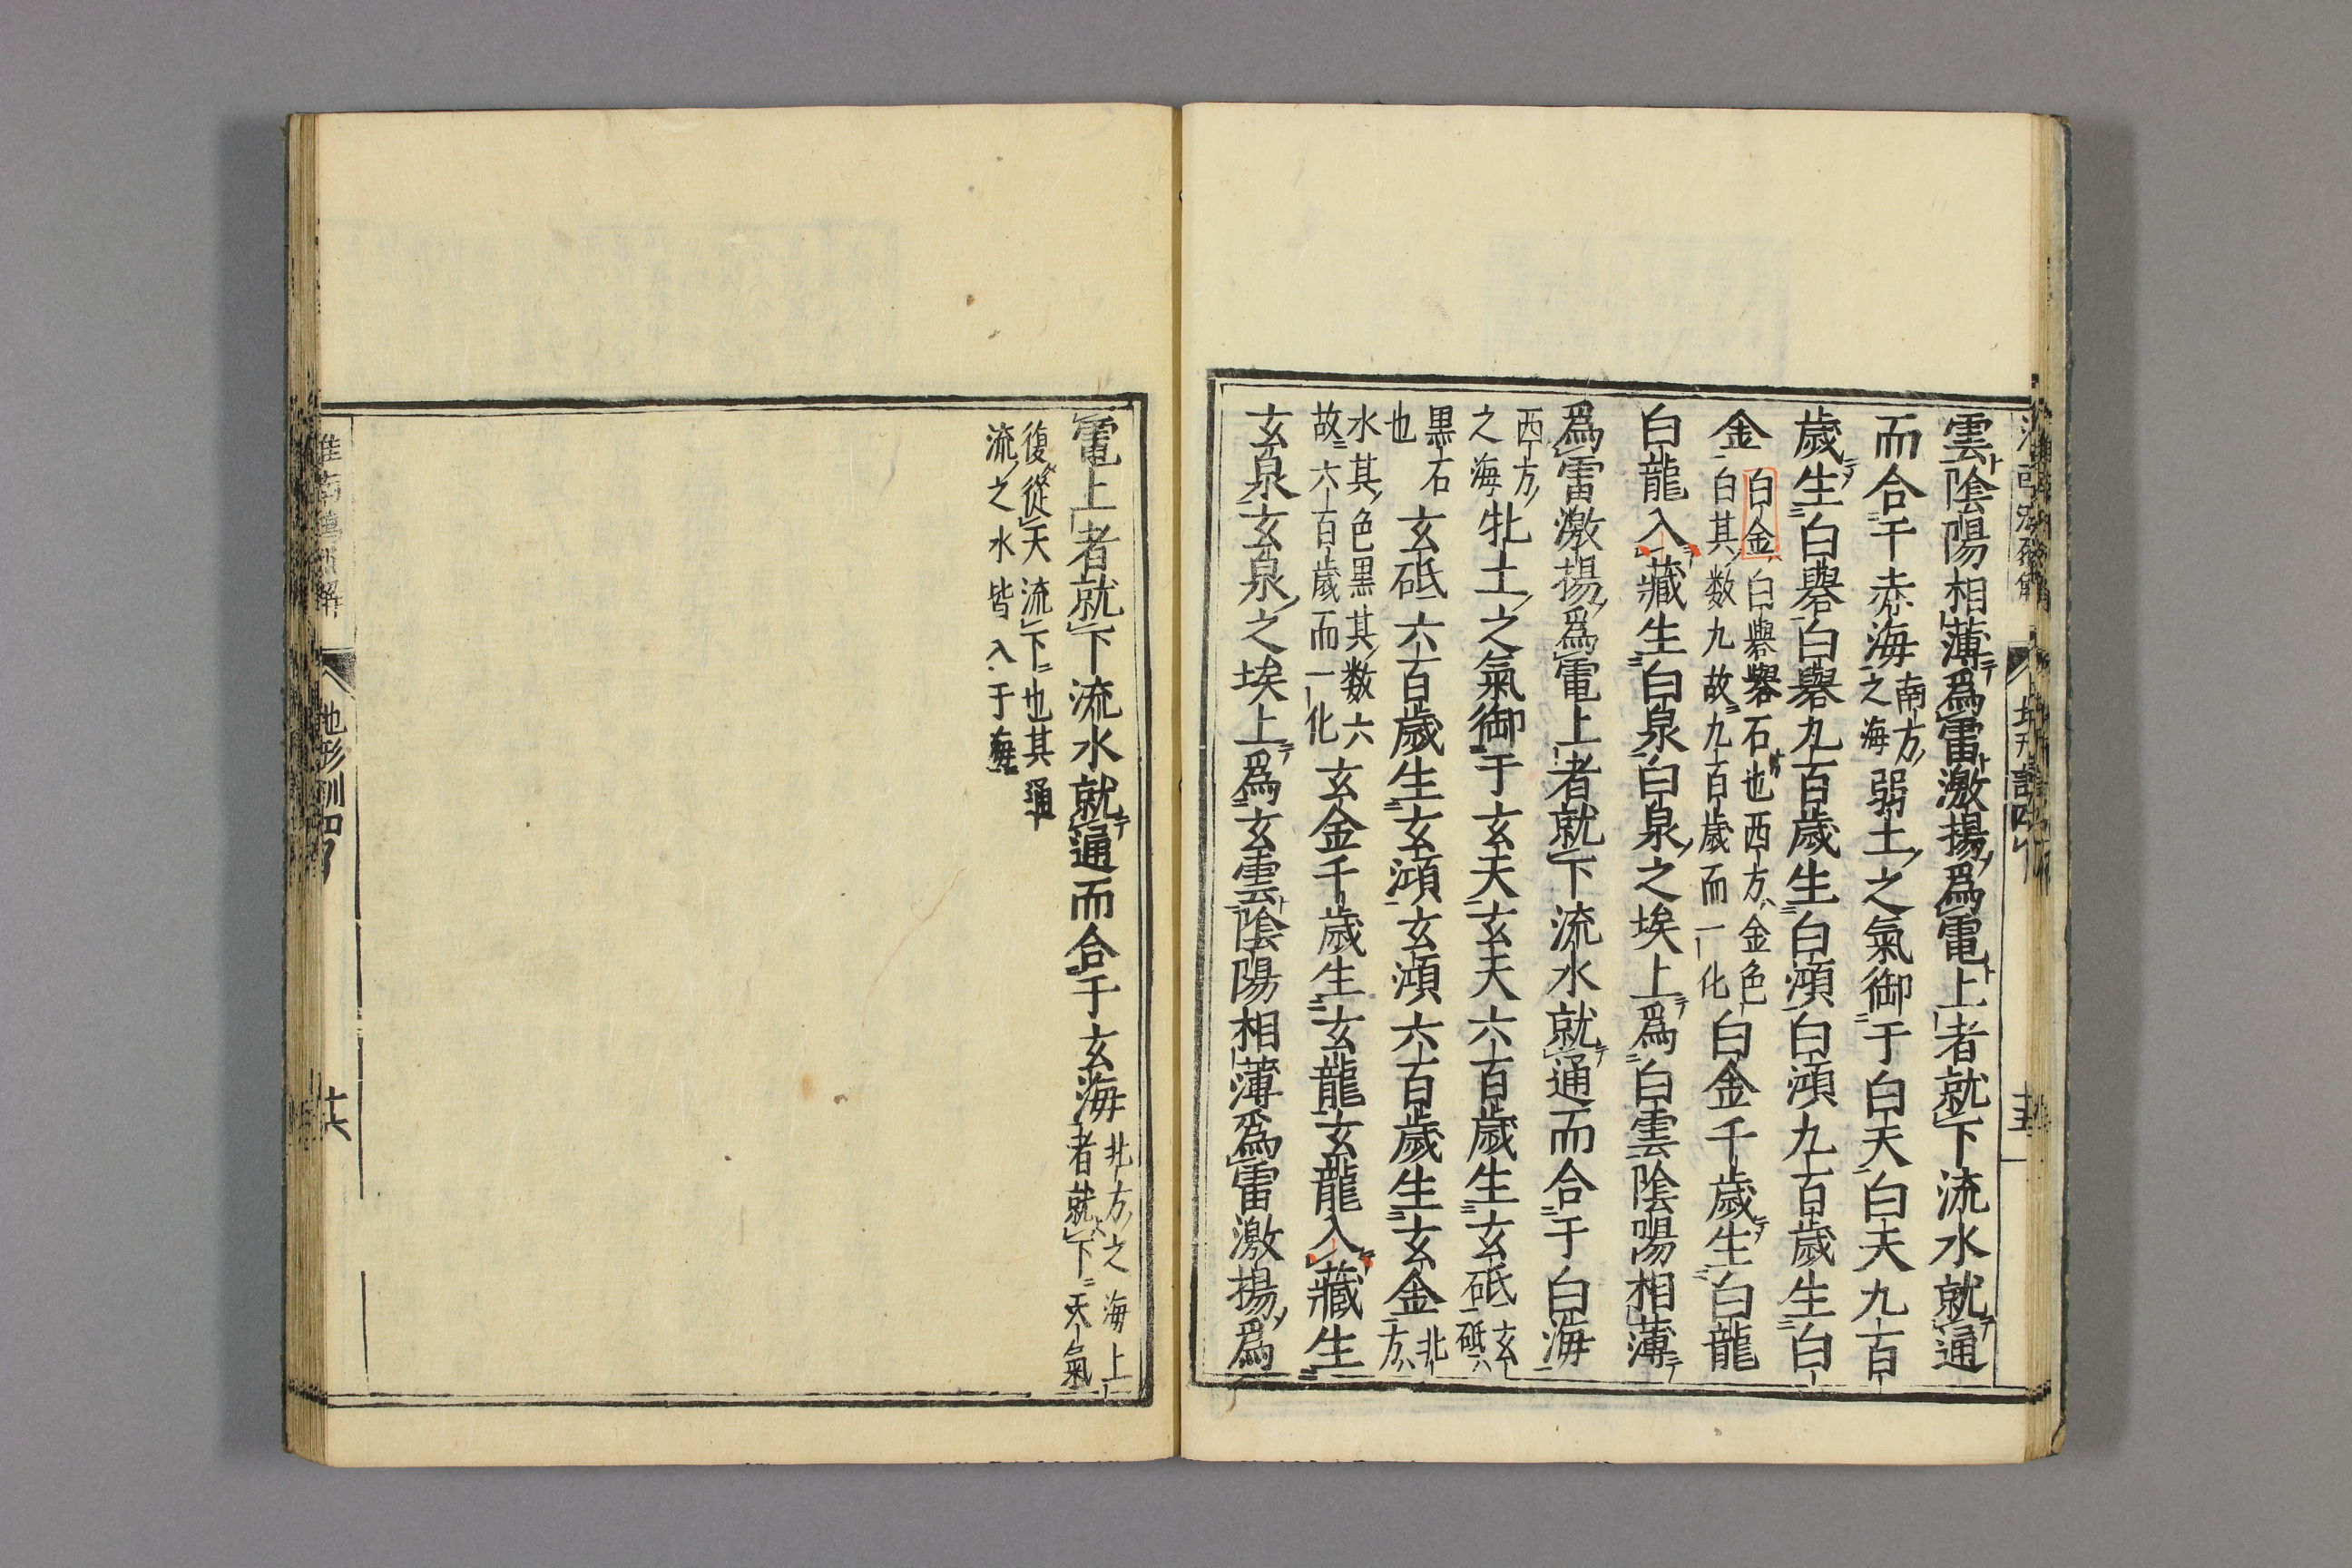 雲陰陽相薄爲雷激揚爲電上者就下流水就通
而合于赤海南方之海弱土之氣御于白天白天九百
歲生白礜白礜九百歲生白澒白澒九百歲生白
金白金白礜礜石也西方金色白其数九故九百歲而一化白金千歲生白龍
白龍入藏生白泉白泉之埃上爲白雲陰陽相薄
爲雷激揚爲電上者就下流水就通而合于白海
西方之海牡土之氣御于玄天玄天六百歲生玄砥玄砥
黒石也玄砥六百歲生玄澒玄澒六百歲生玄金北方
水其色黒其数六故六百歲而一化玄金千歲生玄龍玄龍入藏生
玄泉玄泉之埃上爲玄雲陰陽相薄爲雷激揚爲
電上者就下流水就通而合于玄海北方之海上者就下天氣
復從天流下也其通流之水皆入于海
地形訓四
十六